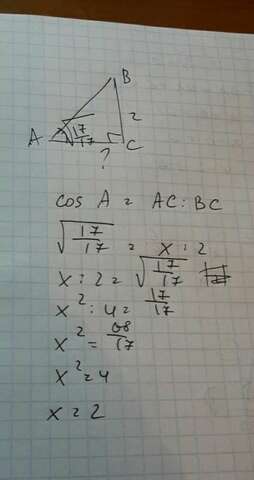 B
√17/17
2
A
C
?
cos A = AC : BC
√17/17 = x : 2
x : 2 = √17/17
x² : 4 = 17/17
x² = 68/17
x² = 4
x = 2